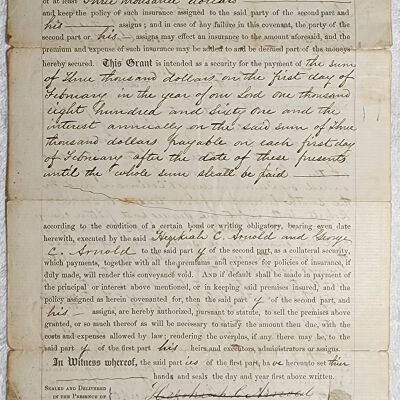 of at least Three thousand dollars
and keep the policy of such insurance assigned to the said party of the second part and
his assigns; and in case of any failure in this covenant, the party of the
second part or his assigns may effect an insurance to the amount aforesaid, and the
premium and expense of such insurance may be added to and be deemed part of the moneys
hereby secured. This Grant is intended as a security for the payment of the sum
of Three thousand dollars on the first day of
February in the year of our Lord one thousand
eight hundred and Sixty one and the
interest annually on the said sum of Three
thousand dollars payable on each first day
of February after the date of these presents
until the whole sum shall be paid
according to the condition of a certain bond or writing obligatory, bearing even date
herewith, executed by the said Hezekiah C. Arnold and George
C. Arnold to the said part y of the second part, as a collateral security,
which payments, together with all the premiums and expenses for policies of insurance, if
duly made, will render this conveyance void. And if default shall be made in payment of
the principal or interest above mentioned, or in keeping said premises insured, and the
policy assigned as herein covenanted for, then the said part y of the second part, and
his assigns, are hereby authorized, pursuant to statute, to sell the premises above
granted, or so much thereof as will be necessary to satisfy the amount then due, with the
costs and expenses allowed by law; rendering the overplus, if any there may be, to the
said part y of the first part his heirs and executors, administrators or assigns.
In Witness whereof, the said part ies of the first part, ha ve hereunto set their
hands and seals the day and year first above written.
Sealed and Delivered
in the presence of
Hezekiah C Arnold